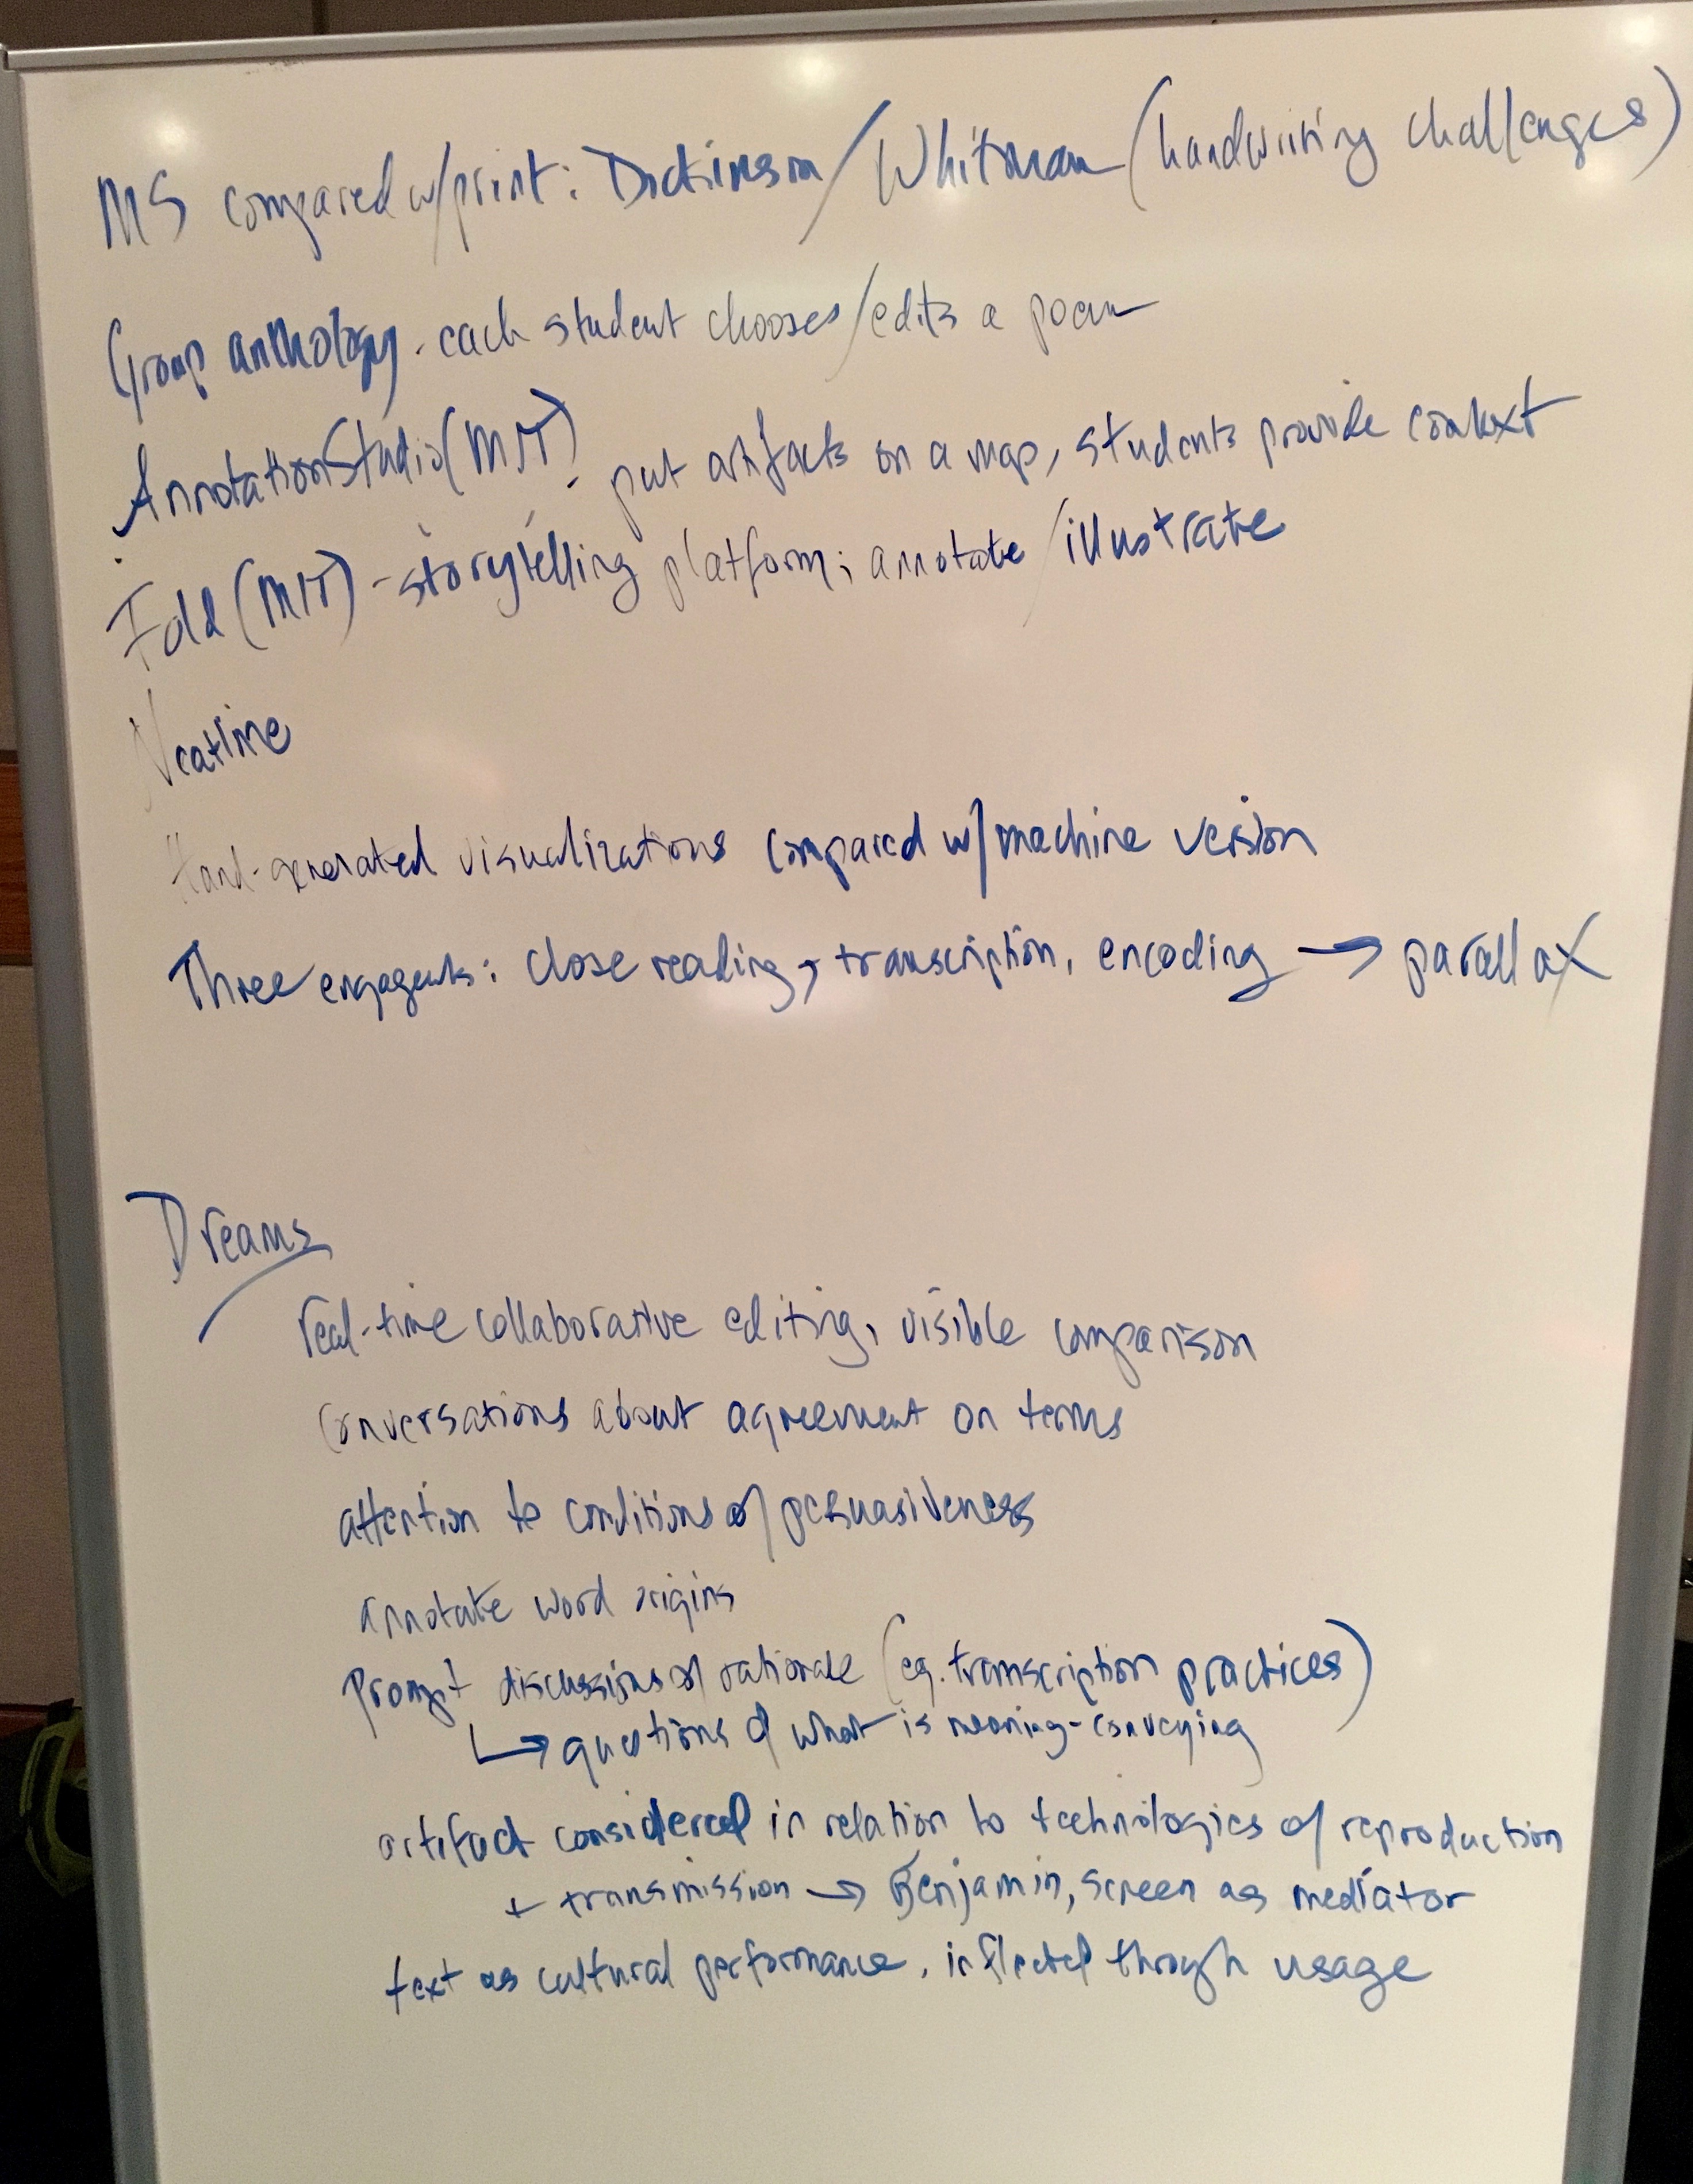 MS compared w/print: Dickinson/Whitman (handwriting challenges)
Group anthology - each student chooses/edits a poem
AnnotationStudio (MIT) - put artifacts on a map, students provide context
Fold (MIT) - storytelling platform; annotate/illustrate
Neatline
Hand-generated visualizations compared w/machine version
Three engagements: close reading, transcription, encoding → parallax
Dreams
real-time collaborative editing, visible comparison
conversations about agreement on terms
attention to conditions of persuasiveness
annotate word origins
Prompt discussions of rationale (eg. transcription practices)
↳ questions of what is meaning-conveying
artifact considered in relation to technologies of reproduction
+ transmission → Benjamin, screen as mediator
text as cultural performance, inflected through usage